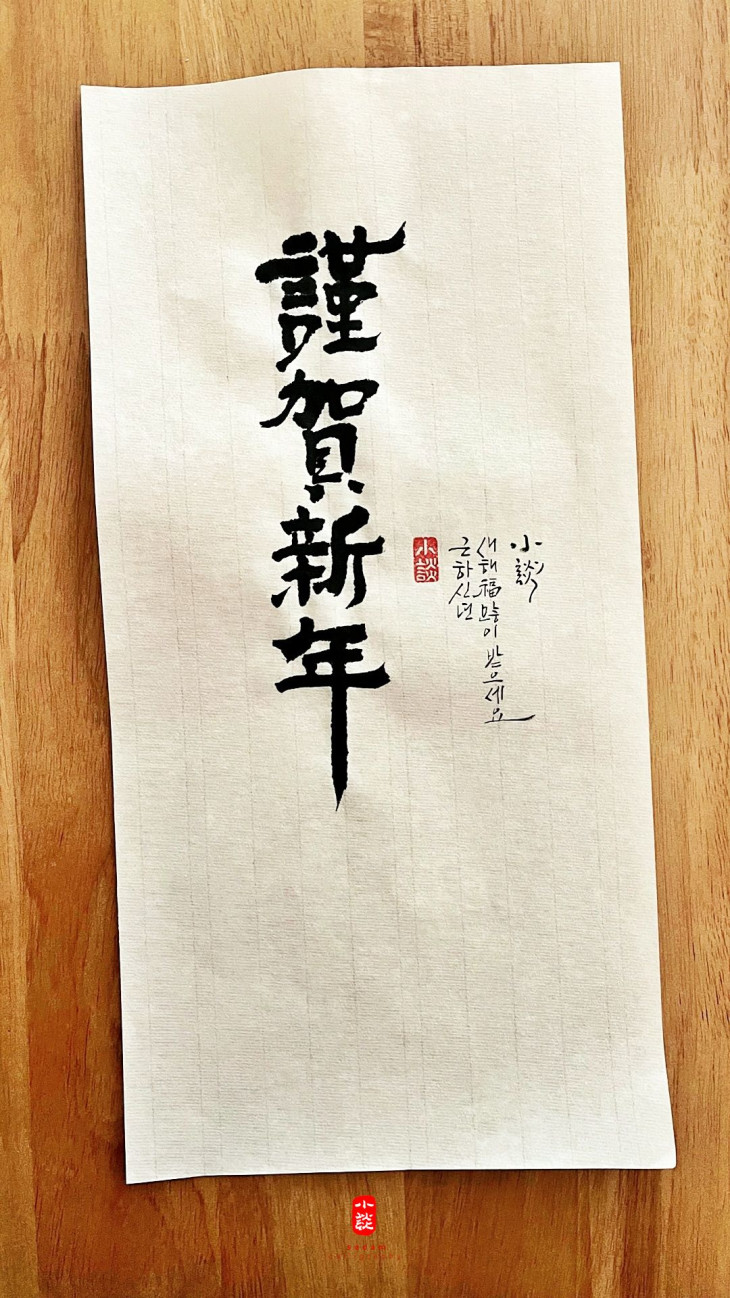 謹賀新年
小談
근하신년
새해福많이 받으세요
小談
小談